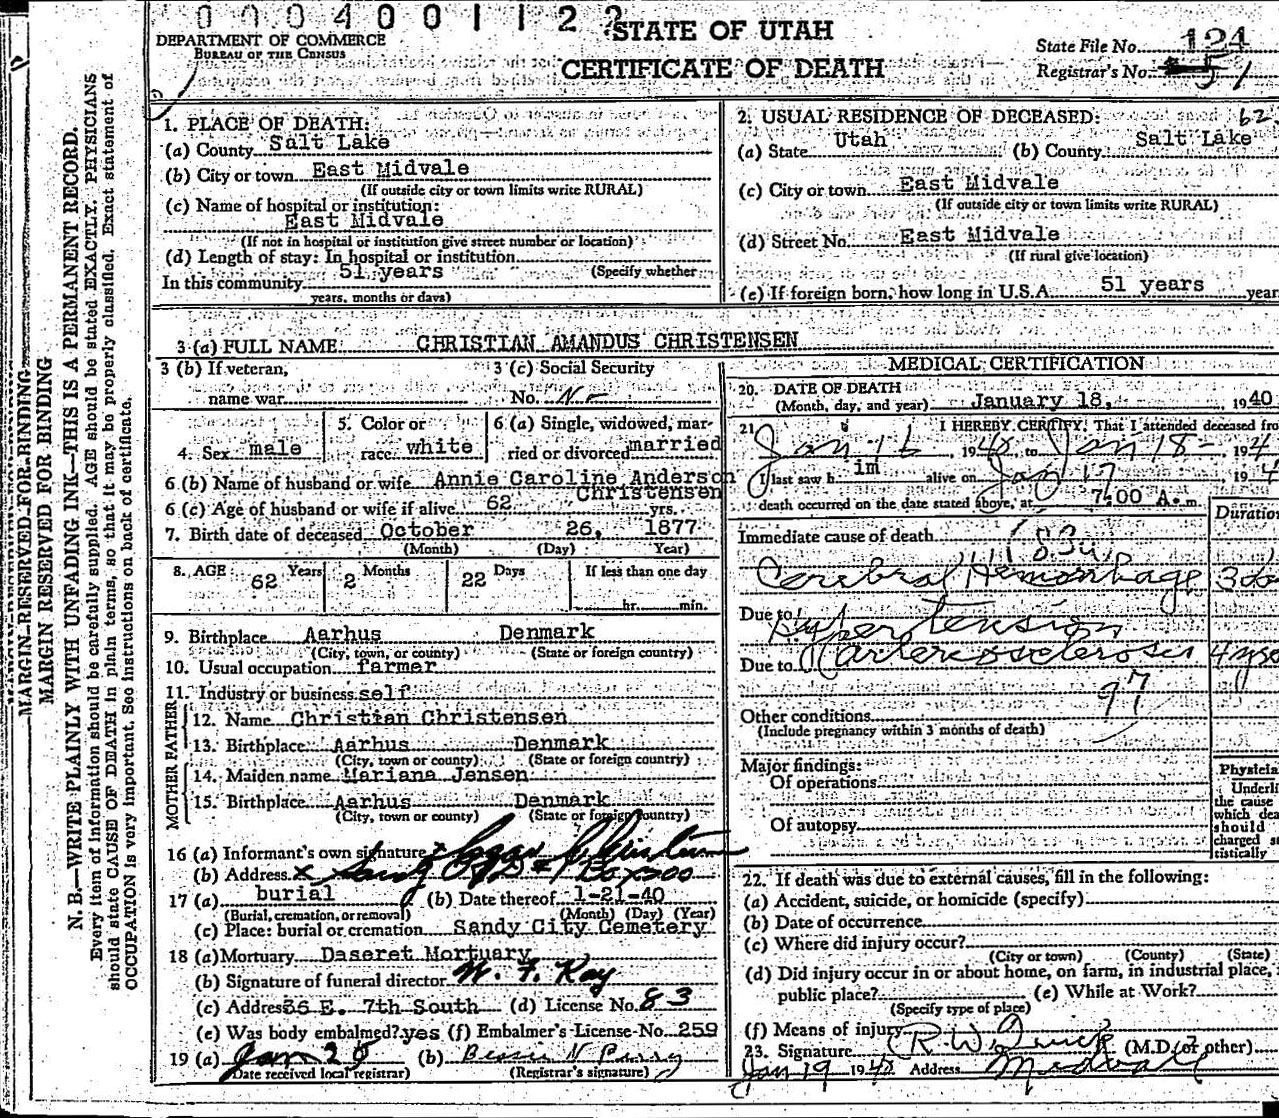 0004001122
STATE OF UTAH
DEPARTMENT OF COMMERCE
BUREAU OF THE CENSUS
CERTIFICATE OF DEATH
State File No. 124
Registrar's No. 51
MARGIN RESERVED FOR BINDING
MARGIN RESERVED FOR BINDING
N. B.—WRITE PLAINLY WITH UNFADING INK—THIS IS A PERMANENT RECORD.
Every item of information should be carefully supplied. AGE should be stated EXACTLY. PHYSICIANS
should state CAUSE OF DEATH in plain terms, so that it may be properly classified. Exact statement of
OCCUPATION is very important. See instructions on back of certificate.
1. PLACE OF DEATH:
(a) County Salt Lake
(b) City or town East Midvale
(If outside city or town limits write RURAL)
(c) Name of hospital or institution:
East Midvale
(If not in hospital or institution give street number or location)
(d) Length of stay: In hospital or institution
In this community 51 years (Specify whether
years, months or days)
2. USUAL RESIDENCE OF DECEASED: 62
(a) State Utah (b) County Salt Lake
(c) City or town East Midvale
(If outside city or town limits write RURAL)
(d) Street No. East Midvale
(If rural give location)
(e) If foreign born, how long in U.S.A. 51 years year
3 (a) FULL NAME: CHRISTIAN AMANDUS CHRISTENSEN
3 (b) If veteran,
name war
3 (c) Social Security
No. No
4. Sex male
5. Color or
race white
6 (a) Single, widowed, mar-
ried or divorced married
6 (b) Name of husband or wife Annie Caroline Anderson
Christensen
6 (c) Age of husband or wife if alive 62 yrs.
7. Birth date of deceased October 26, 1877
(Month) (Day) Year)
8. AGE 62 Years 2 Months 22 Days If less than one day
hr. min.
9. Birthplace Aarhus Denmark
(City, town, or county) (State or foreign country)
10. Usual occupation farmer
11. Industry or business self
FATHER
12. Name Christian Christensen
13. Birthplace Aarhus Denmark
(City, town or county) (State or foreign country)
MOTHER
14. Maiden name Mariana Jensen
15. Birthplace Aarhus Denmark
(City, town or county) (State or foreign country)
16 (a) Informant's own signature
(b) Address x Sandy Box 200
17 (a) burial (b) Date thereof 1-21-40
(Burial, cremation, or removal) (Month) (Day) (Year)
(c) Place: burial or cremation Sandy City Cemetery
18 (a) Mortuary Daseret Mortuary
(b) Signature of funeral director W. F. Kay
(c) Address 36 E. 7th South (d) License No. 83
(e) Was body embalmed? yes (f) Embalmer's License No. 259
19 (a) Jan 20 (b) Bessie N Perry
Date received local registrar) (Registrar's signature)
MEDICAL CERTIFICATION
20. DATE OF DEATH
(Month, day, and year) January 18, 1940
21 I HEREBY CERTIFY, That I attended deceased fro
Jan 16 1940, to Jan 18 194
I last saw him alive on Jan 17 194
death occurred on the date stated above, at 7:00 A.m.
Duration
Immediate cause of death
Cerebral Hemorrhage 3 da
Due to Hypertension
Due to arteriosclerosis 4 yrs
97
Other conditions
(Include pregnancy within 3 months of death)
Major findings:
Of operations
Of autopsy
Physicia
Underli
the cause
which dea
should
charged st
tistically
22. If death was due to external causes, fill in the following:
(a) Accident, suicide, or homicide (specify)
(b) Date of occurrence
(c) Where did injury occur?
(City or town) (County) (State)
(d) Did injury occur in or about home, on farm, in industrial place,
public place? (e) While at Work?
(Specify type of place)
(f) Means of injury
23. Signature R. W. Quick (M.D. or other)
Jan 19 1940 Address Midvale